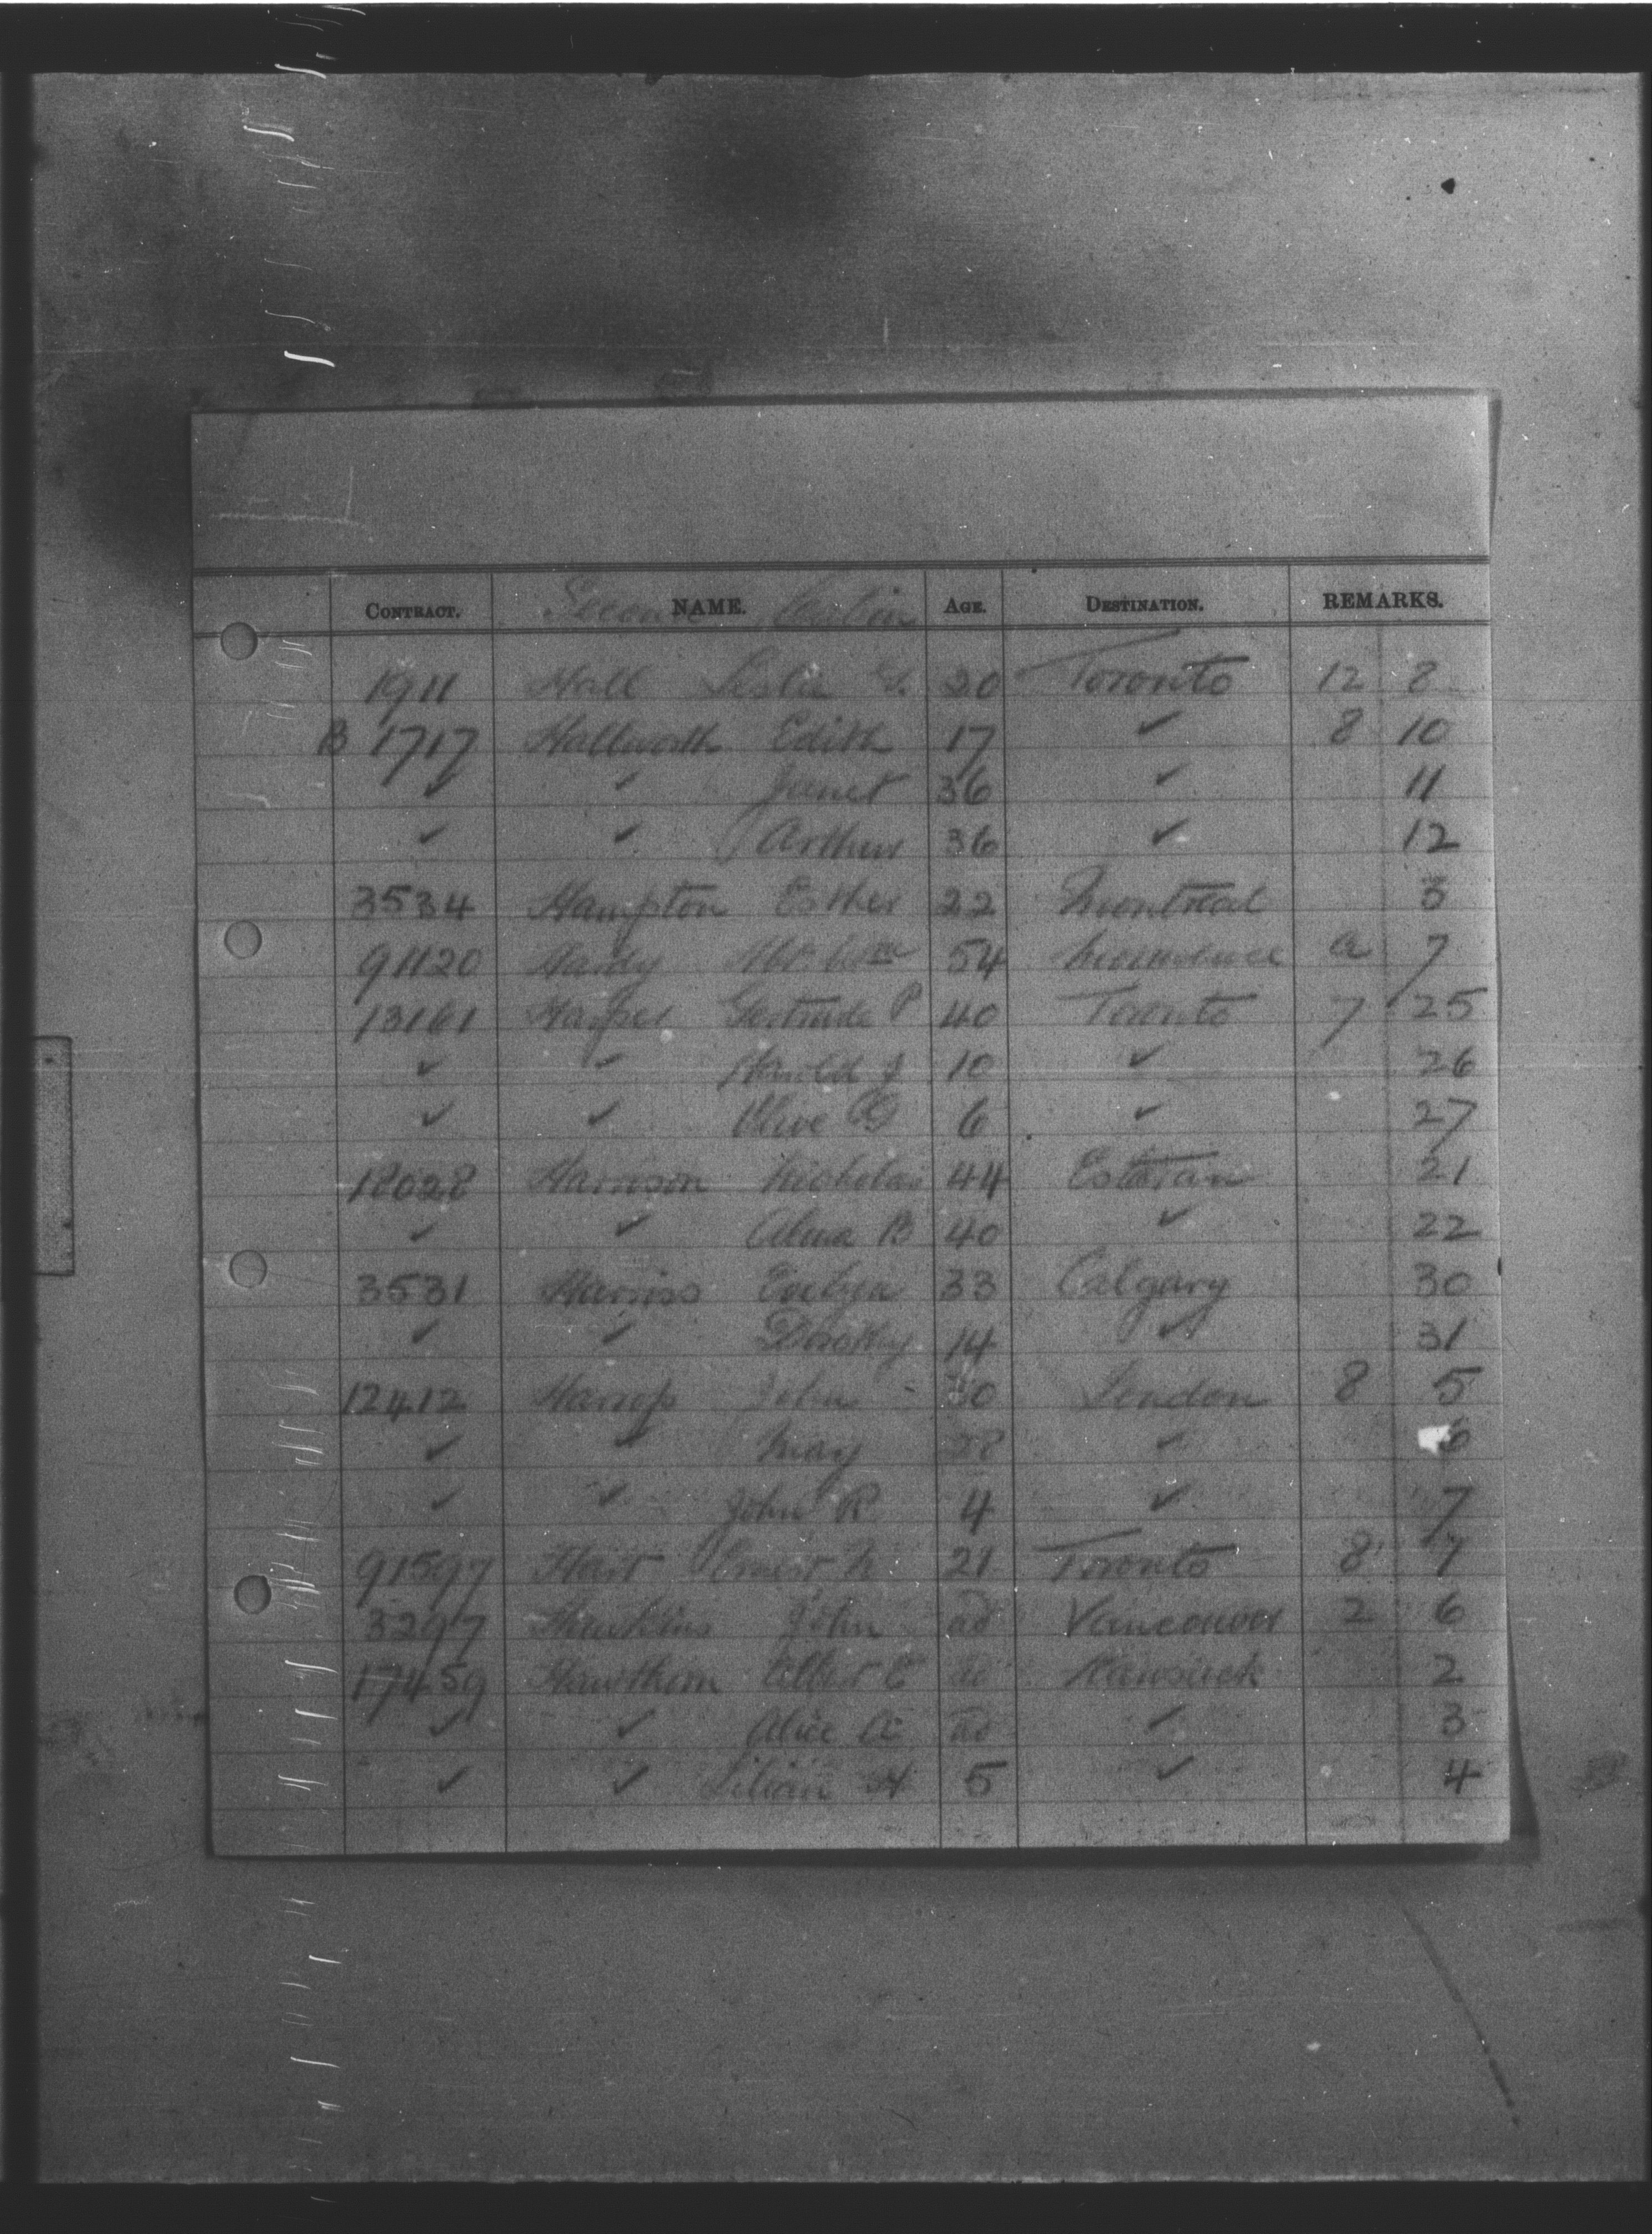 CONTRACT. NAME. AGE. DESTINATION. REMARKS.
Second Cabin
1911 Hall Leslie G. 20 Toronto 12 8
B 1717 Hallworth Edith 17 ✓ 8 10
✓ ✓ Janet 36 ✓ 11
✓ ✓ Arthur 36 ✓ 12
3534 Hampton Esther 22 Montreal 3
91120 Hardy 54 a 7
13161 Harper Gertrude P 40 Toronto 7 25
✓ ✓ Harold J 10 ✓ 26
✓ ✓ Olive G 6 ✓ 27
18028 Harrison Nicholas 44 Estevan 21
✓ ✓ Alma B 40 ✓ 22
3531 Harriss Evelyn 33 Calgary 30
✓ ✓ Dorothy 14 ✓ 31
12412 Harrop John 30 London 8 5
✓ ✓ May 28 ✓ 6
✓ ✓ John R 4 ✓ 7
91597 Hart Ernest N 21 Toronto 8 7
3297 Hawkins John ad Vancouver 2 6
17459 Hawthorn Albert E ad 2
✓ ✓ Alice A ad ✓ 3
✓ ✓ Lilian H 5 ✓ 4